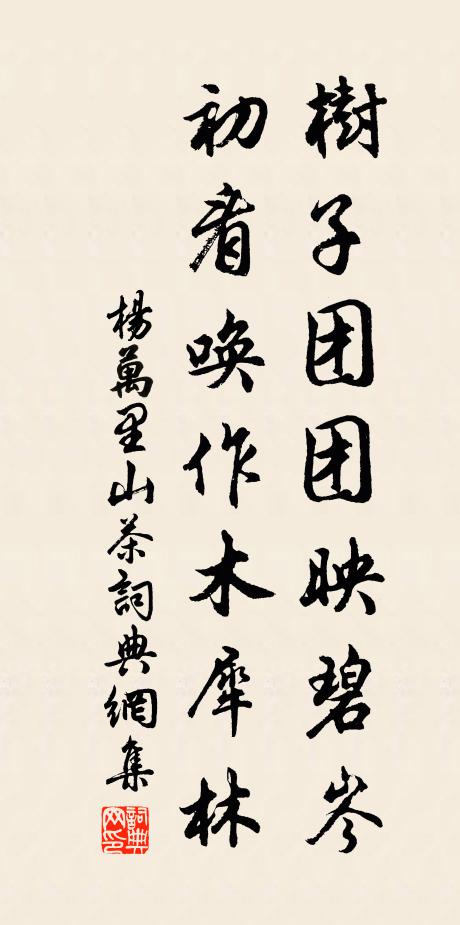 樹子团团映碧岑
初看唤作木犀林
楊萬里山茶詞典網集
詞典网印